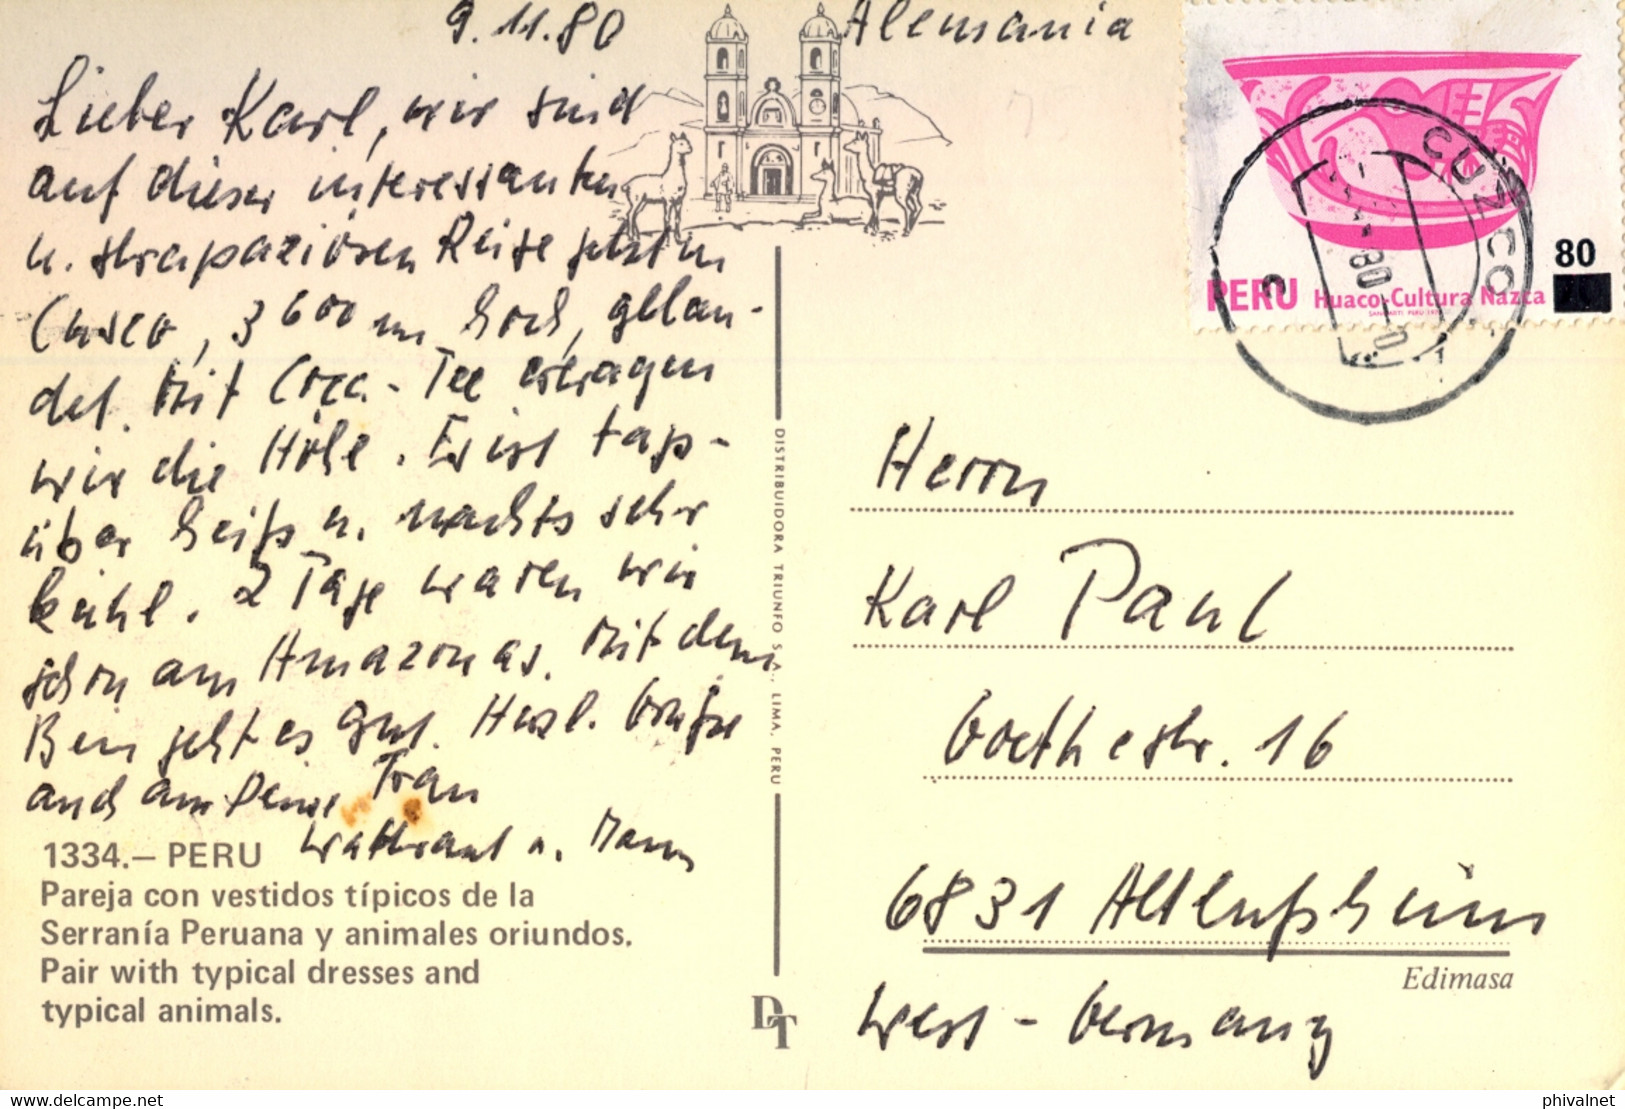 9.11.80
Alemania
Lieber Karl, wir sind
auf dieser interessanten
u. strapaziösen Reise jetzt in
Cusco, 3600 m hoch, gelan-
det. Mit Coca-Tee ertragen
wir die Höhe. Es ist tags-
über heiß u. nachts sehr
kühl. 2 Tage waren wir
schon am Amazonas. Mit dem
Bein geht es gut. Herzl. Grüße
auch an Deine Frau
Waltraut u.
1334.– PERU
Pareja con vestidos típicos de la
Serranía Peruana y animales oriundos.
Pair with typical dresses and
typical animals.
DISTRIBUIDORA TRIUNFO S.A., LIMA, PERU
DT
CUZCO
80
PERU Huaco-Cultura Nazca
Herrn
Karl Paul
Goethestr. 16
6831 Altlußheim
Edimasa
West-Germany
hipstamp.com/store/phil-ex
phivalnet